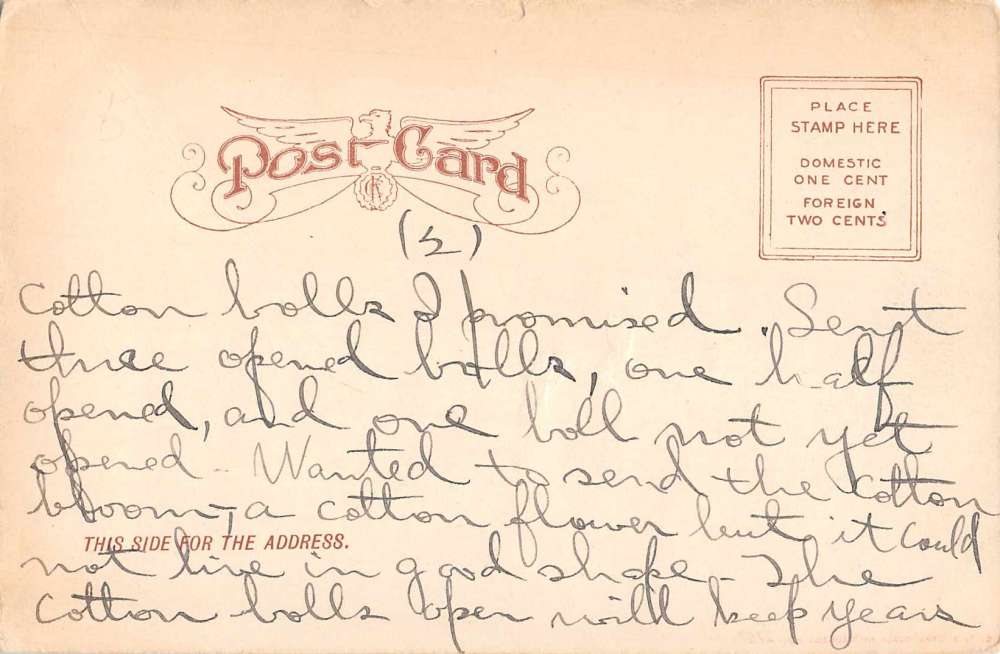 Post Card
PLACE
STAMP HERE
DOMESTIC
ONE CENT
FOREIGN
TWO CENTS
(5)
Cotton bolls I promised. Sent
three opened bolls, one half
opened, and one boll not yet
opened - Wanted to send the cotton
bloom, a cotton flower but it could
THIS SIDE FOR THE ADDRESS.
not live in good shape - The
Cotton bolls open will keep years